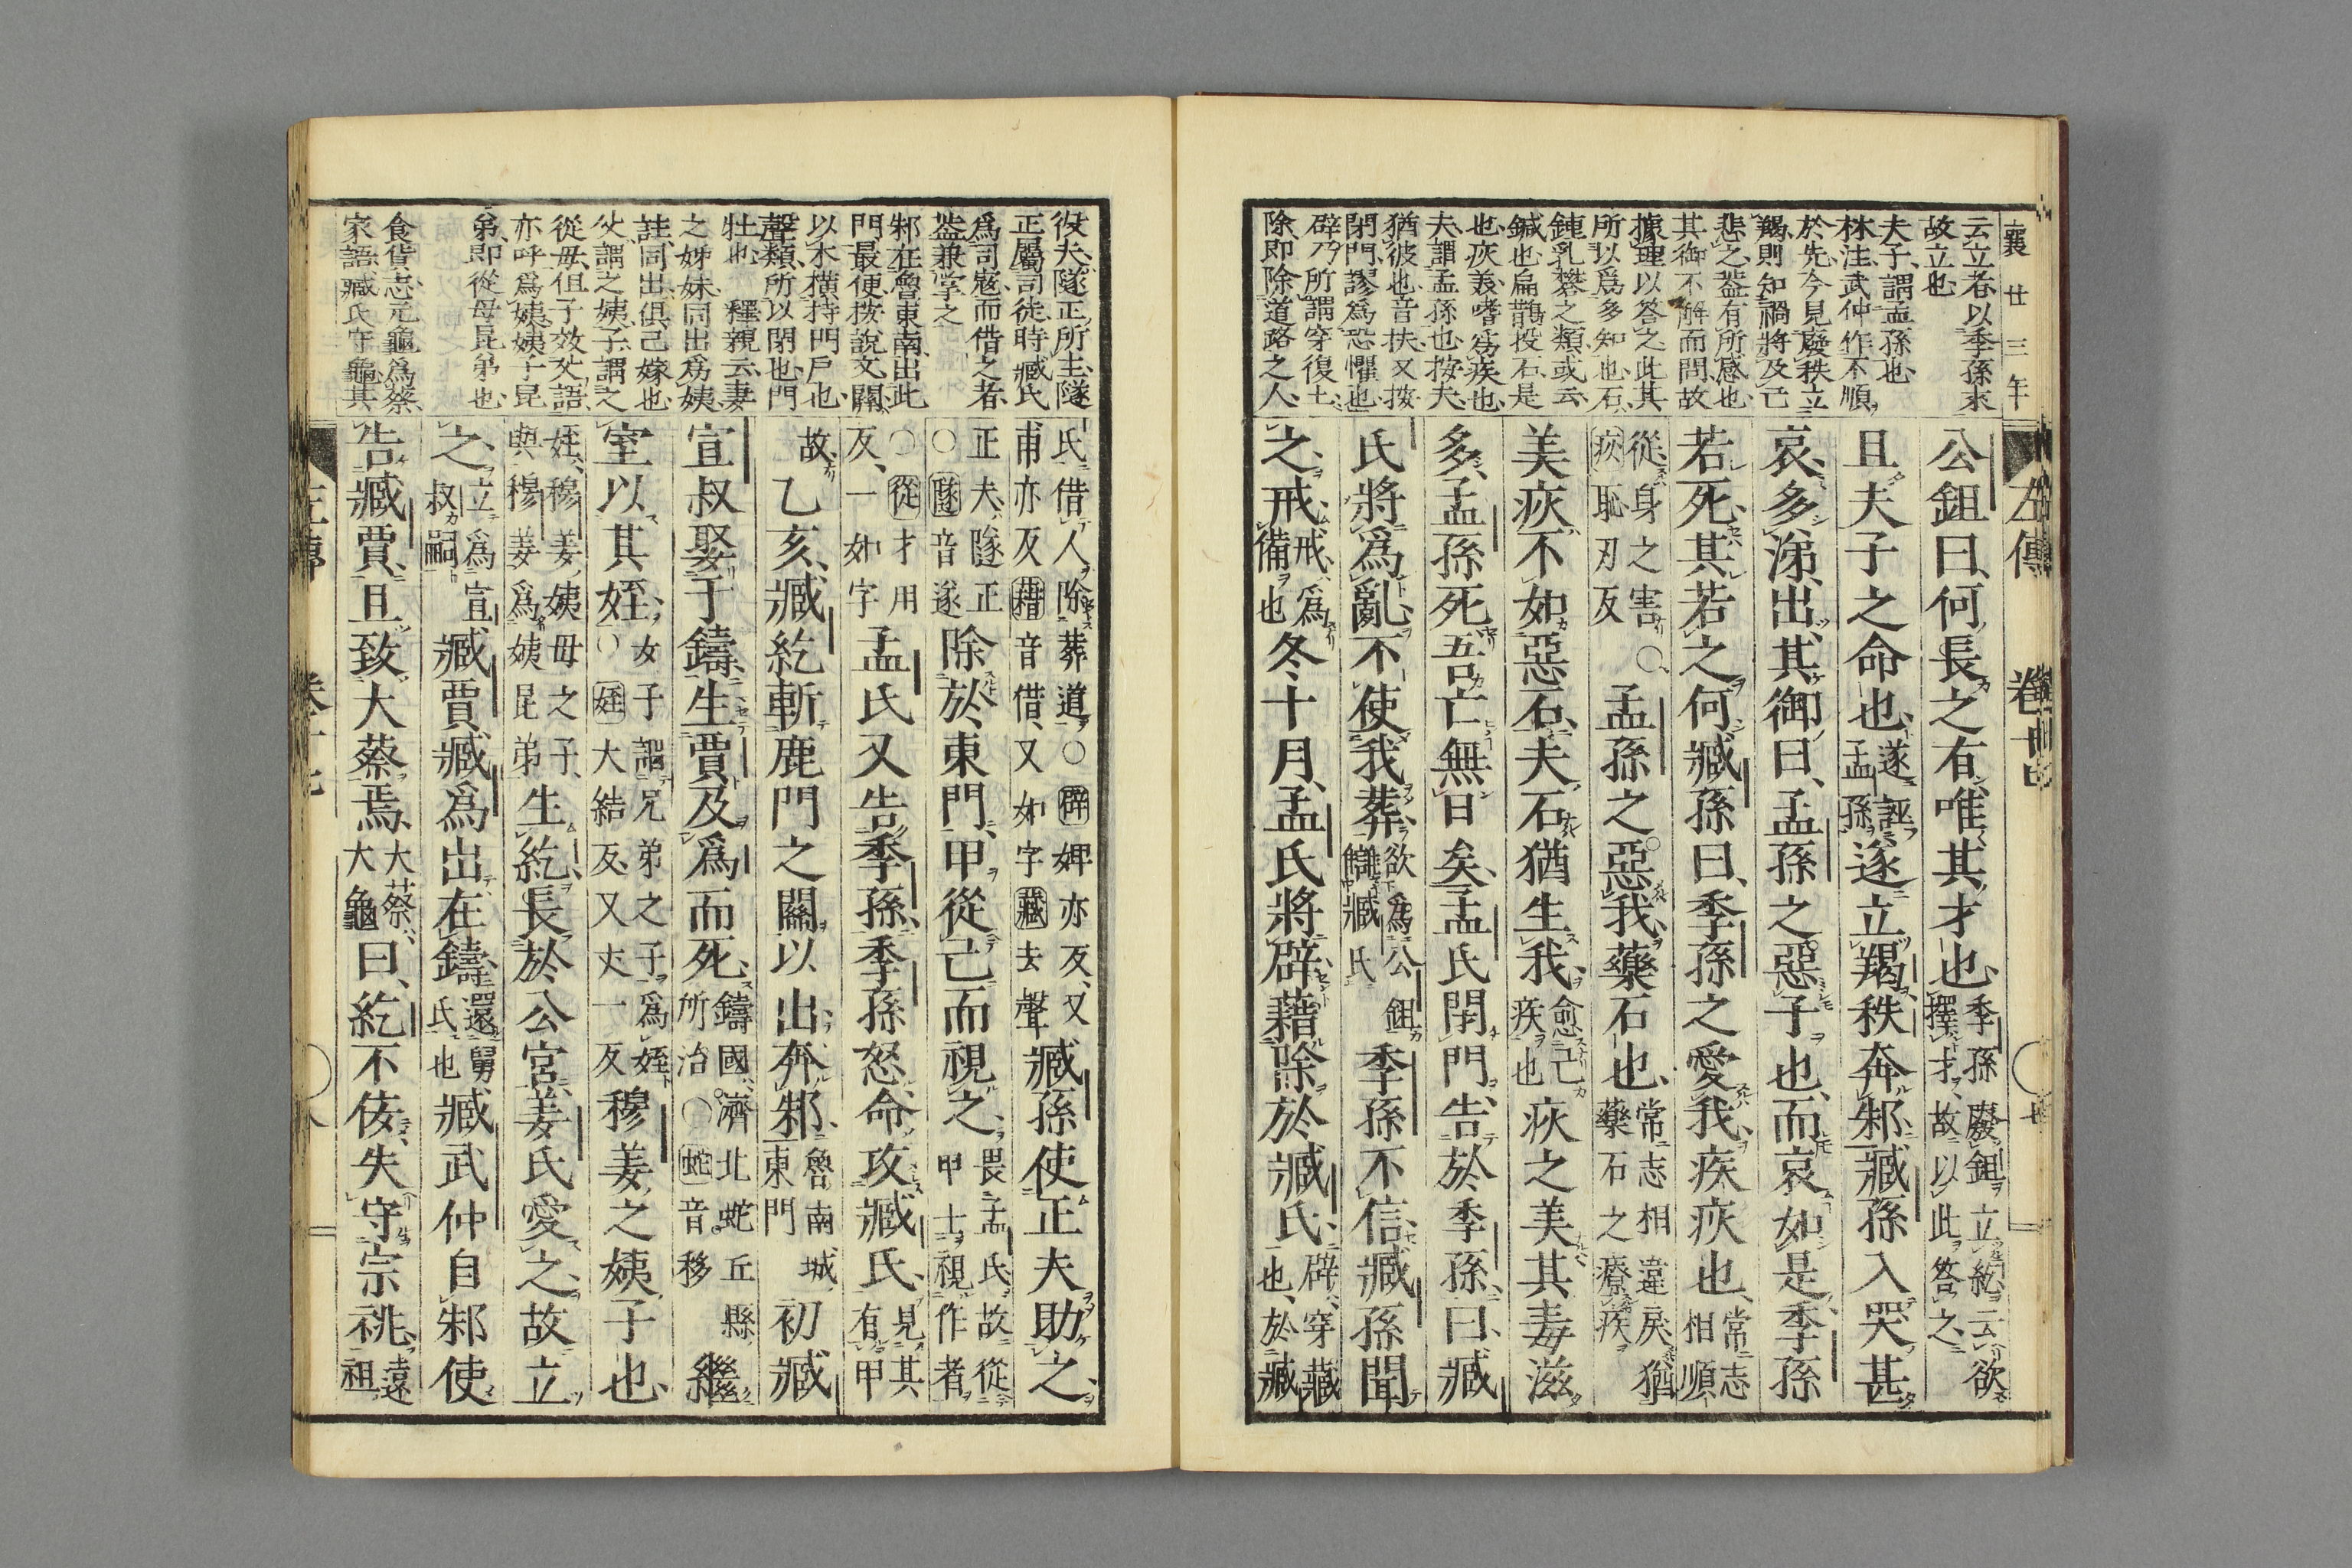 襄廿三年
左傳
云立者以季孫求
故立也
夫子謂孟孫也
林注武仲作不順
於先今見廢秩立
羯則知禍將及己
悲之蓋有所感也
其御不解而問故
據理以答之此其
所以爲多知也石
鍾乳礬之類或云
鍼也扁鵲投石是
也疢美嗜爲疾也
夫謂孟孫也按夫
猶彼也音扶又按
閉門謬爲恐懼也
辟乃所謂穿復土
除即除道路之人
公鉏曰何長之有唯其才也季孫廢鉏立紇云欲
擇才故以此答之
且夫子之命也遂誣
孟孫遂立羯秩奔邾臧孫入哭甚
哀多涕出其御曰孟孫之惡子也而哀如是季孫
若死其若之何臧孫曰季孫之愛我疾疢也常志
相順
從身之害
疢恥刃反○孟孫之惡我藥石也常志相違戾猶
藥石之療疾
美疢不如惡石夫石猶生我愈己
疾也疢之美其毒滋
多孟孫死吾亡無日矣孟氏閉門告於季孫曰臧
氏將爲亂不使我葬欲爲公鉏
讎臧氏季孫不信臧孫聞
之戒戒爲
備也冬十月孟氏將辟藉除於臧氏辟穿藏
也於臧
役夫隧正所主隧
正屬司徒時臧氏
爲司寇而借之者
蓋兼掌之
邾在魯東南出此
門最便按說文關
以木橫持門戶也
聲類所以閉也門
牡也　釋親云妻
之姊妹同出爲姨
註同出俱已嫁也
父謂之姨子謂之
從母但子效父語
亦呼爲姨姨子昆
弟即從母昆弟也
食貨志元龜爲蔡
家語臧氏守龜其
氏借人除葬道○辟婢亦反又
甫亦反藉音借又如字藏去聲臧孫使正夫助之
正夫隧正
○隧音遂除於東門甲從己而視之畏孟氏故從
甲士視作者
○從才用
反一如字孟氏又告季孫季孫怒命攻臧氏見其
有甲
故乙亥臧紇斬鹿門之關以出奔邾魯南城
東門初臧
宣叔娶于鑄生賈及爲而死鑄國濟北蛇丘縣
所治○蛇音移繼
室以其姪女子謂兄弟之子爲姪
○姪大結反又丈一反穆姜之姨子也
姪穆姜姨母之子
與穆姜爲姨昆弟生紇長於公宮姜氏愛之故立
之立爲宣
叔嗣臧賈臧爲出在鑄還舅
氏也臧武仲自邾使
告臧賈且致大蔡焉大蔡
大龜曰紇不佞失守宗祧遠
祖